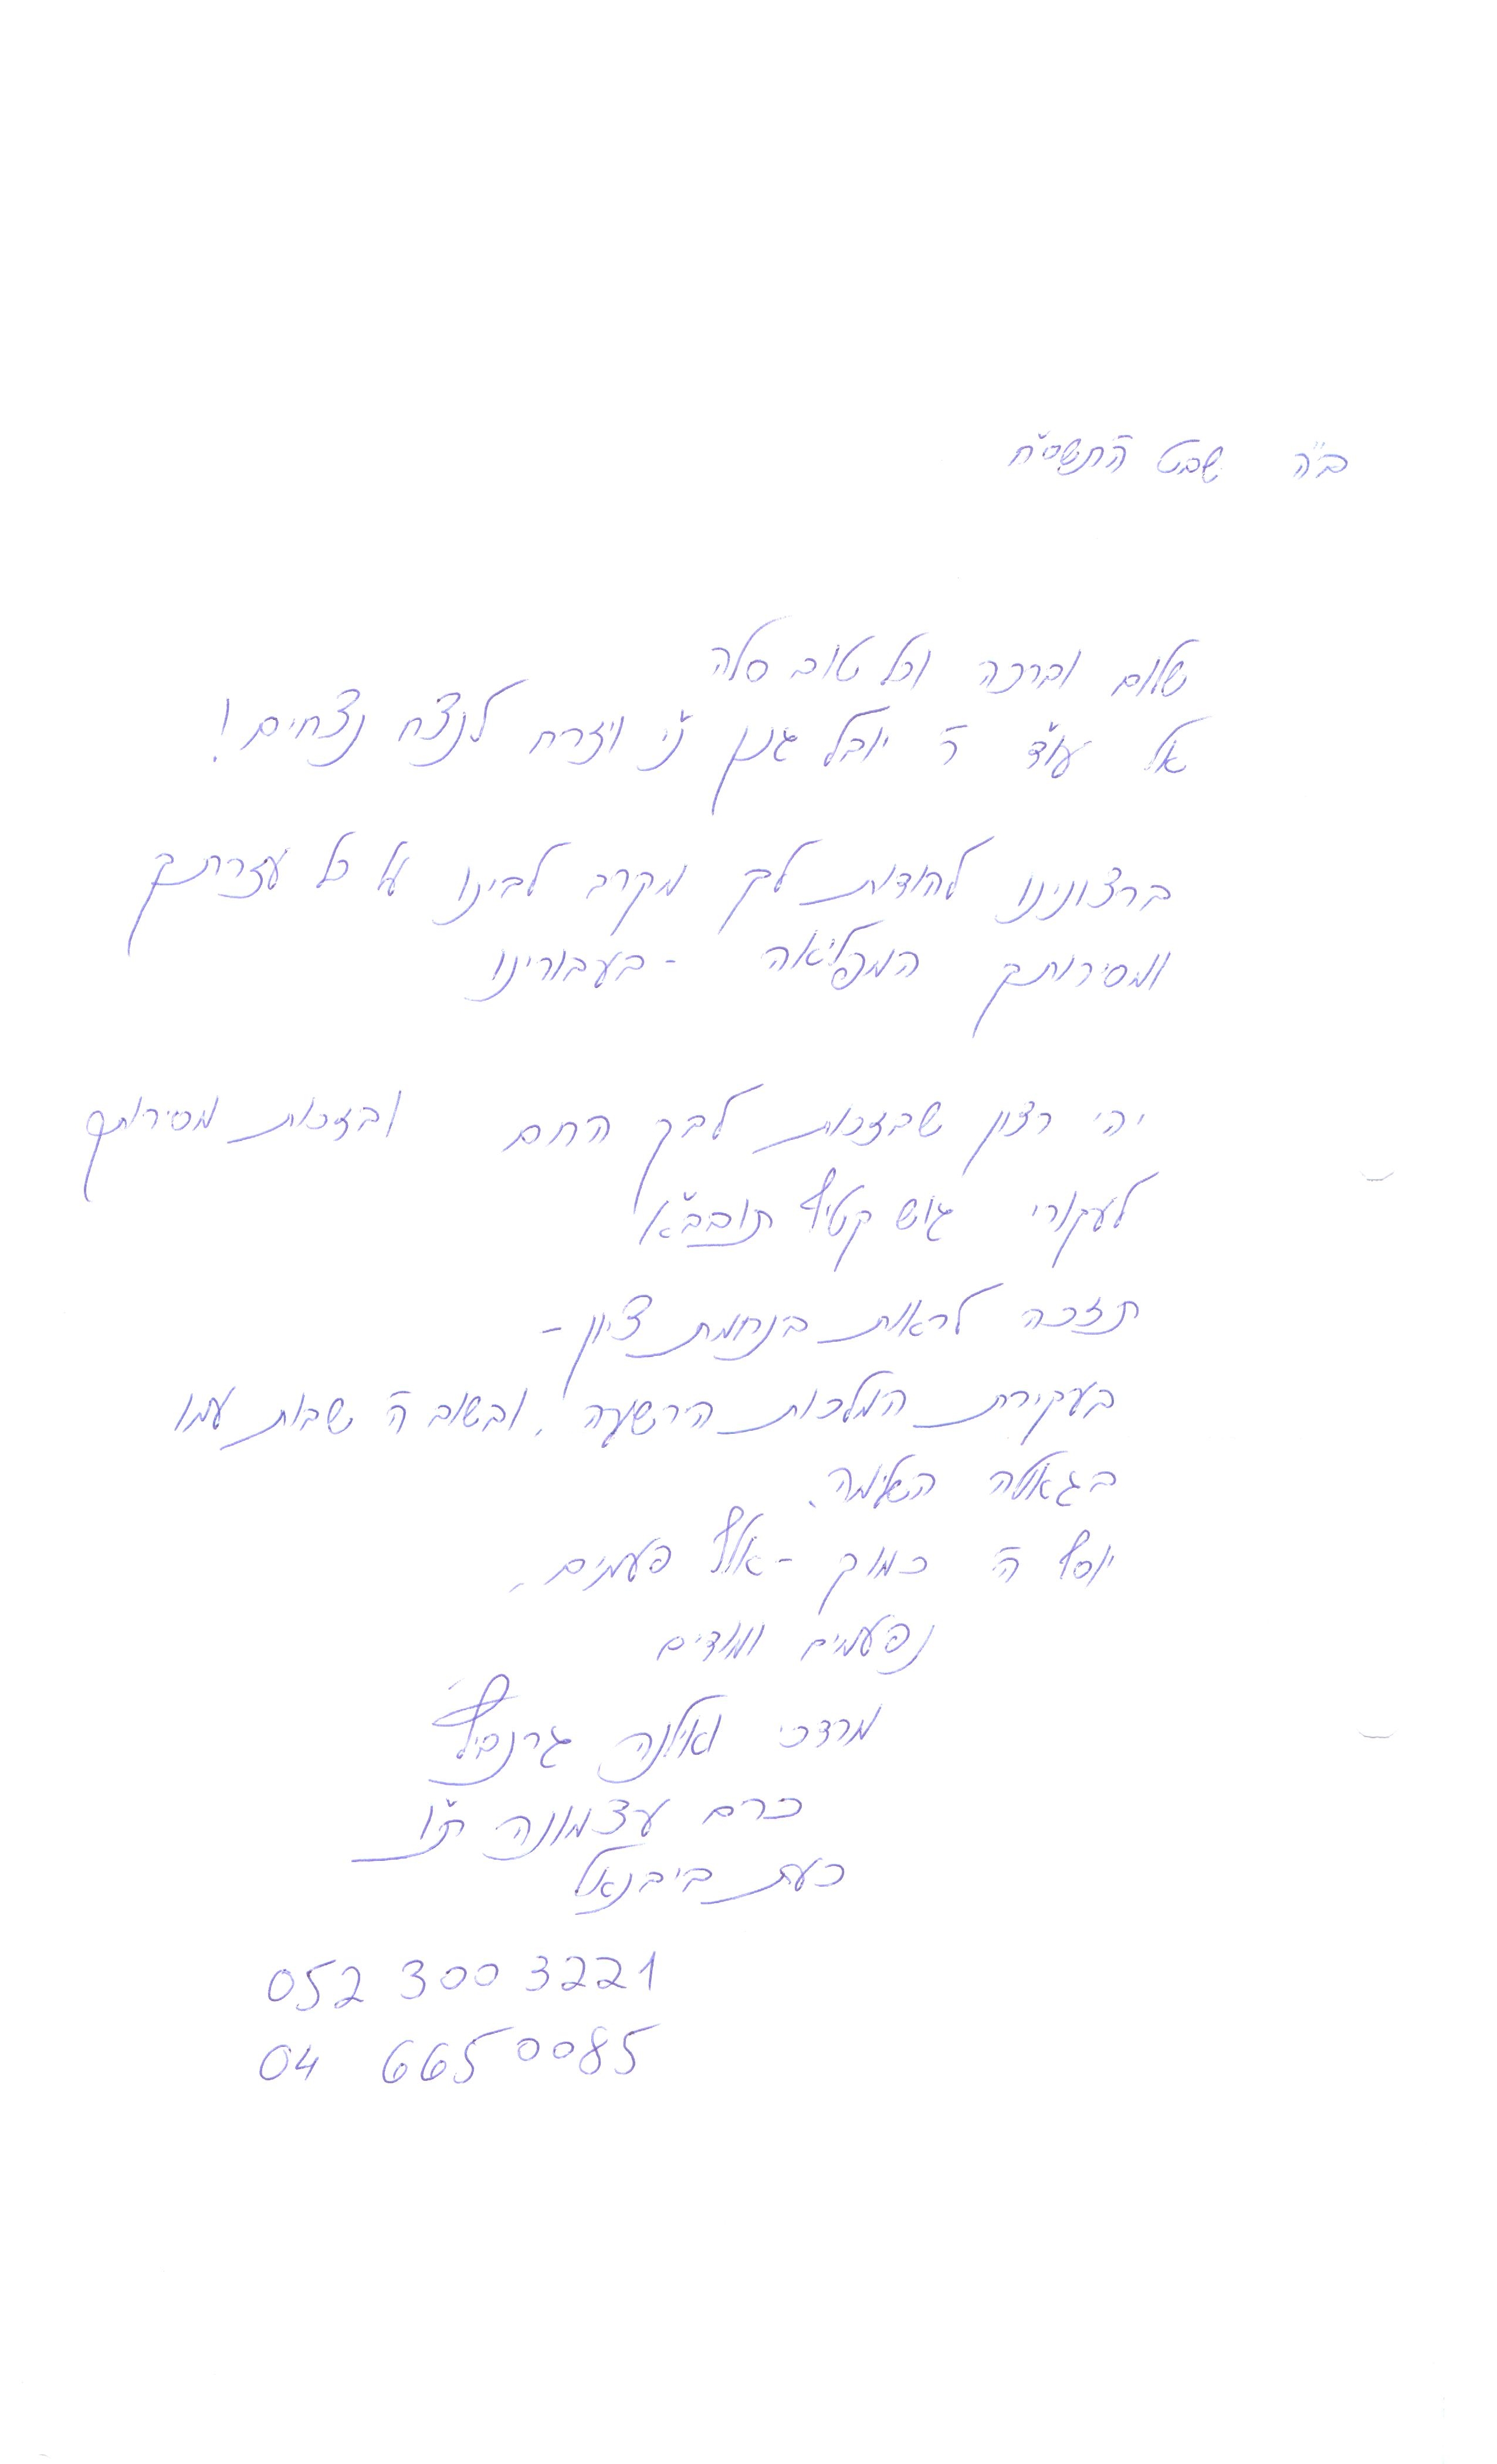 ב"ה שבט ה'תשס"ח
שלום וברכה וכל טוב סלה
אל עו"ד ה' יובל גונן נ"י ויזרח לנצח נצחים!
ברצונינו להודות לך מקרב לבינו על כל עזרתך
ומסירותך המפליאה - בעבורינו
יהי רצון שבזכות לבך החם ובזכות מסירותך
לעקורי גוש קטיף תובב"א
תזכה לראות בנחמת ציון -
בעקירת המלכות הירשעה, ובשוב ה' שבות עמו
בגאולה השלימה.
יוסף ה' כמוך - אלף פעמים.
נפעמים ומודים
מרדכי ואילנה
כרם עצמונה ת"ו
כעת ביבנאל
052 300 3221
04 665 0085